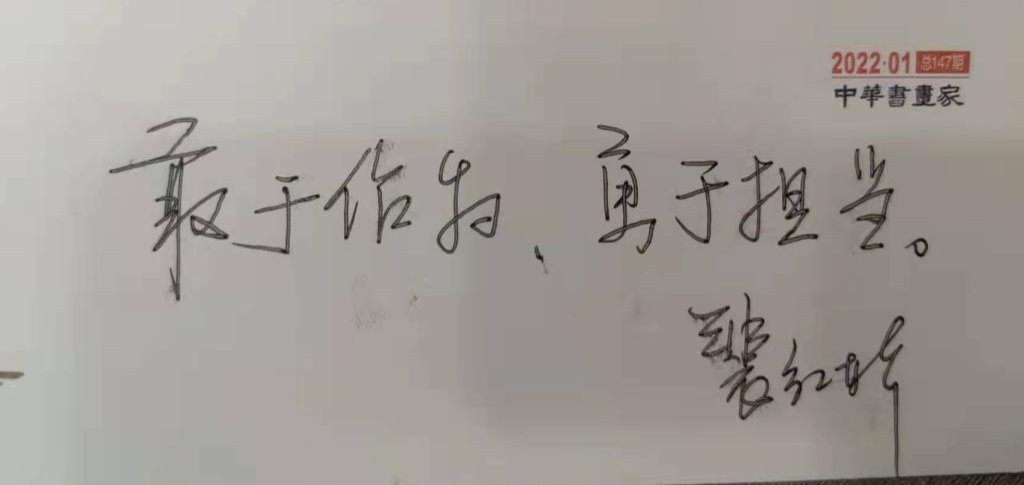 2022·01 总147期
中华書畫家
敢于作为、勇于担当。
裴红